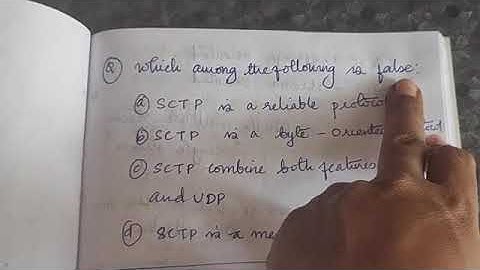 Q Which among the following is false:
a SCTP is a reliable protocol
b SCTP is a byte - oriented
c SCTP combine both features
and UDP
d SCTP is a